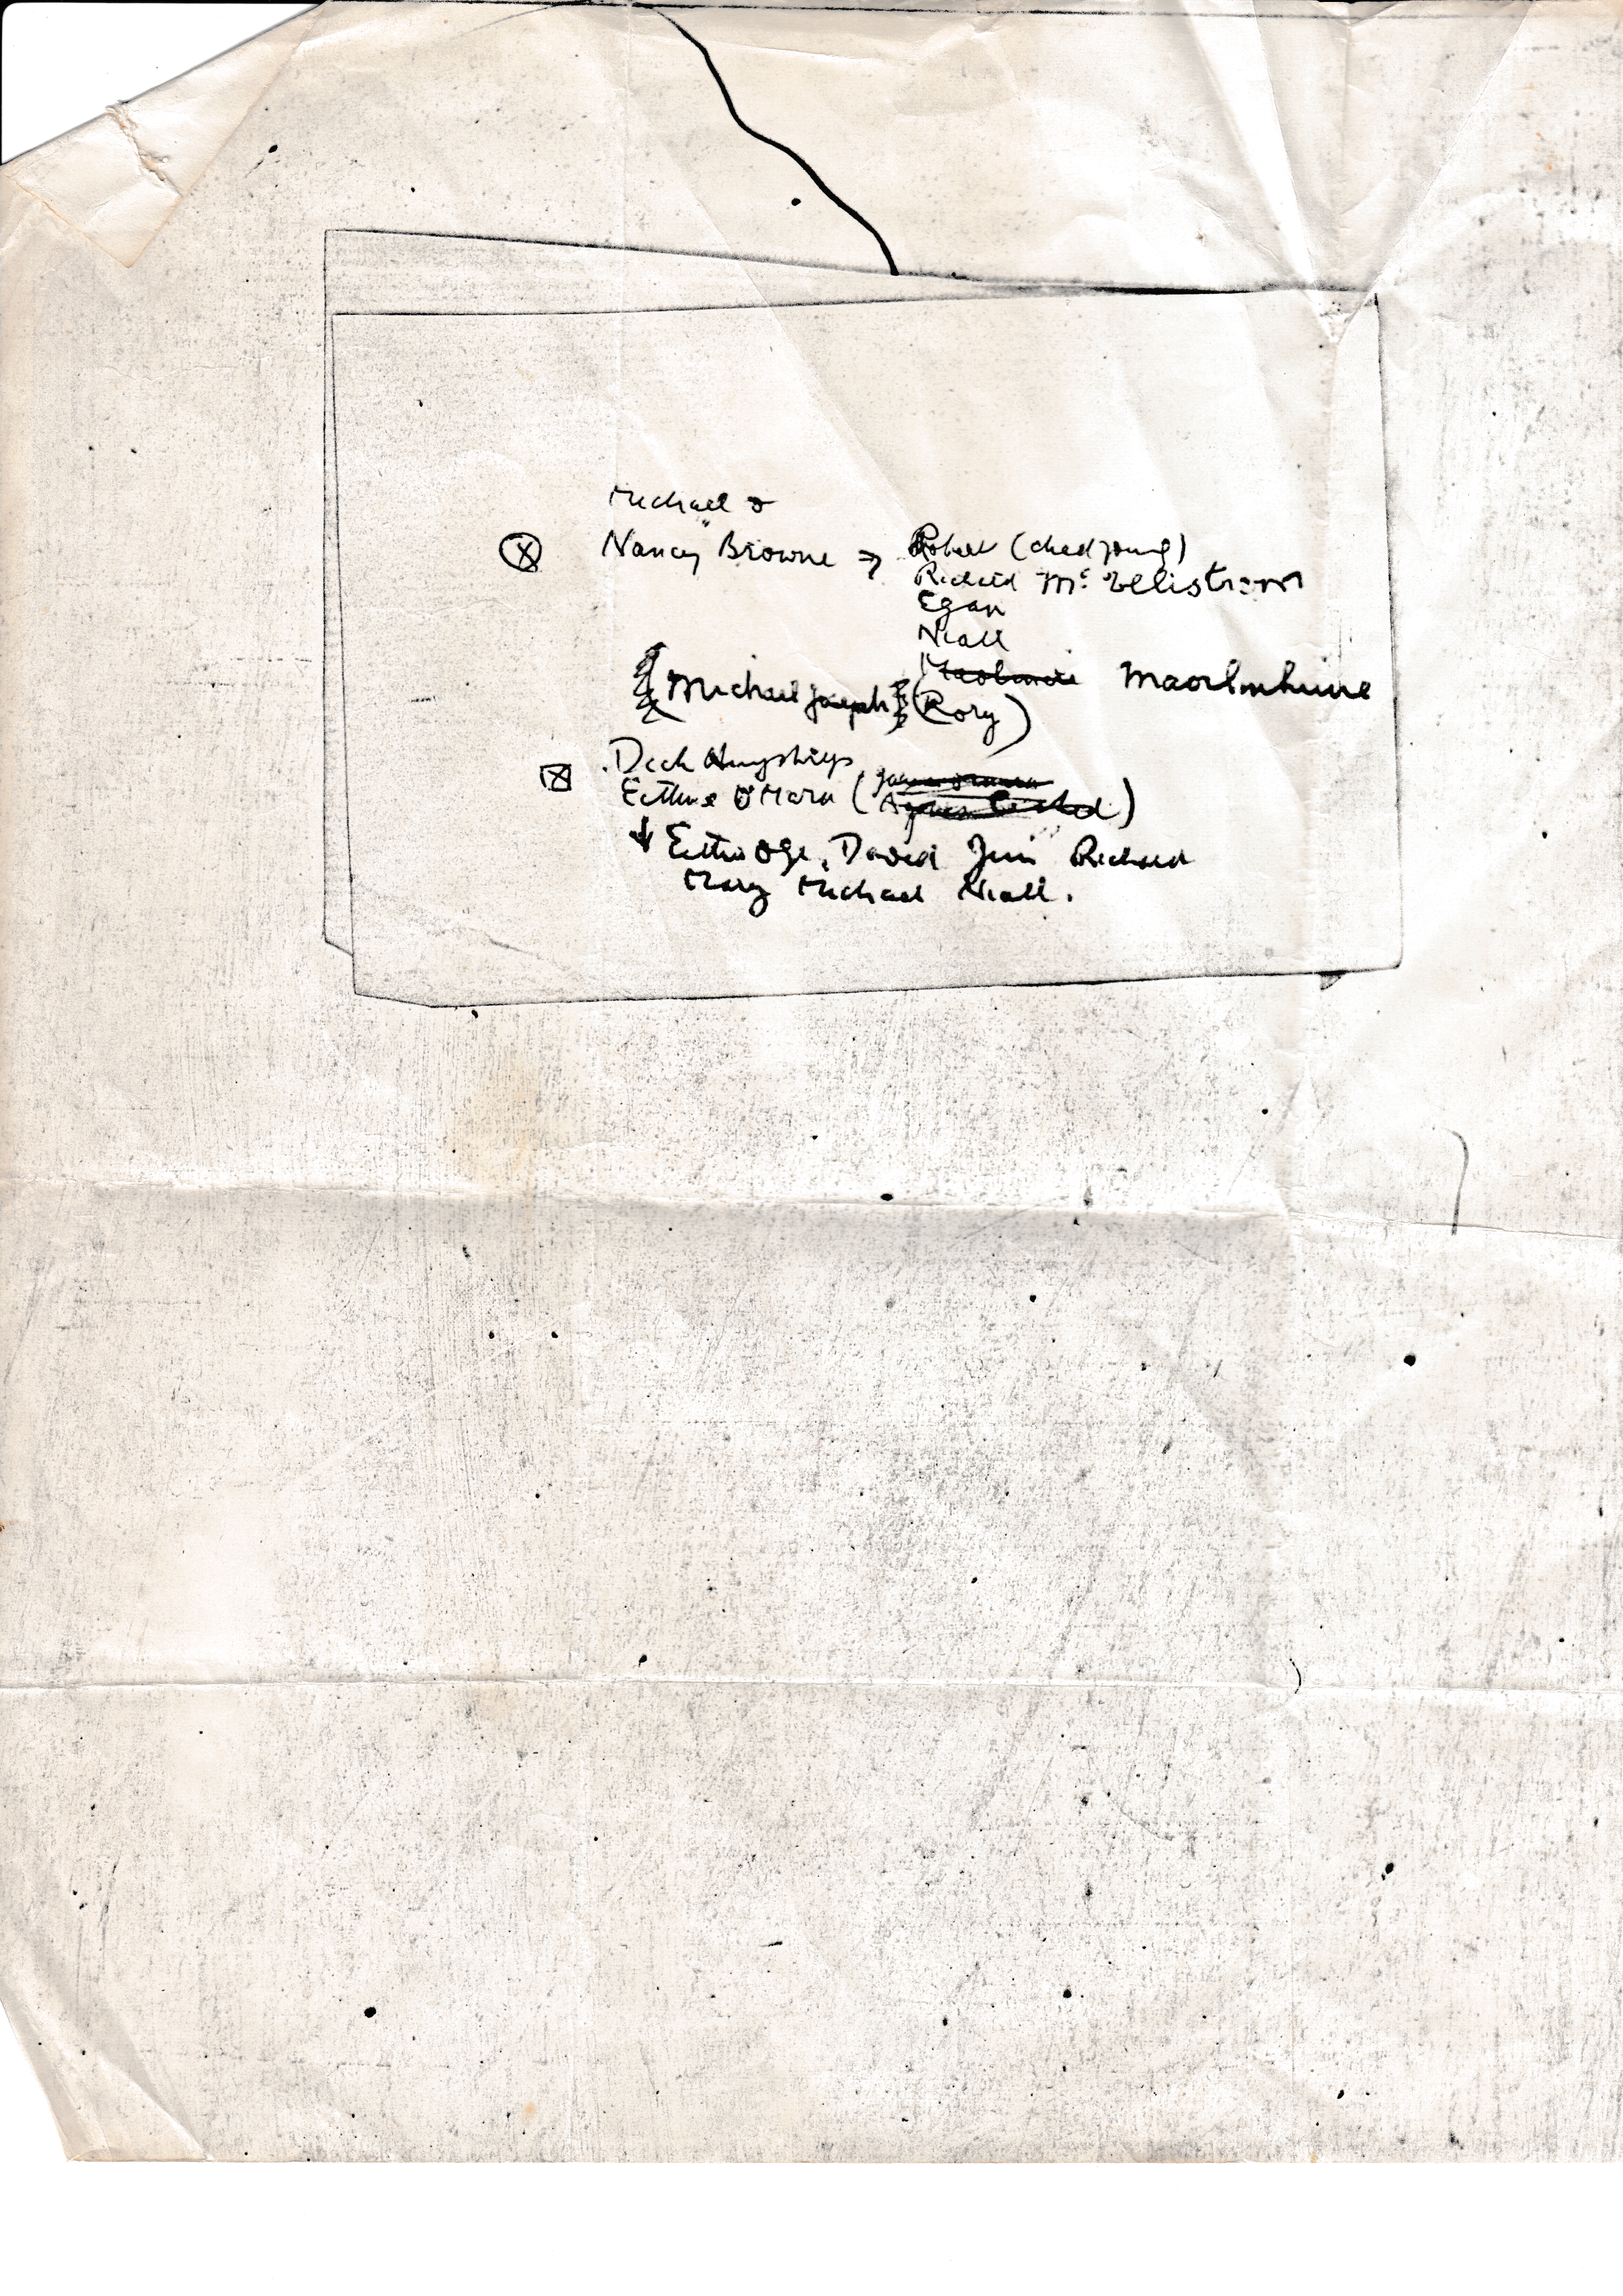 Michael &
Nancy Browne → Robert (died young)
Richard Mc Ellistrom
Egan
Niall
Maolmuire Maolmhuire
{Michael Joseph} (Rory)
Dick Humphreys
Eithne O'Mara (
↓ Eithne Oge, David Jim Richard
Mary Michael Niall.